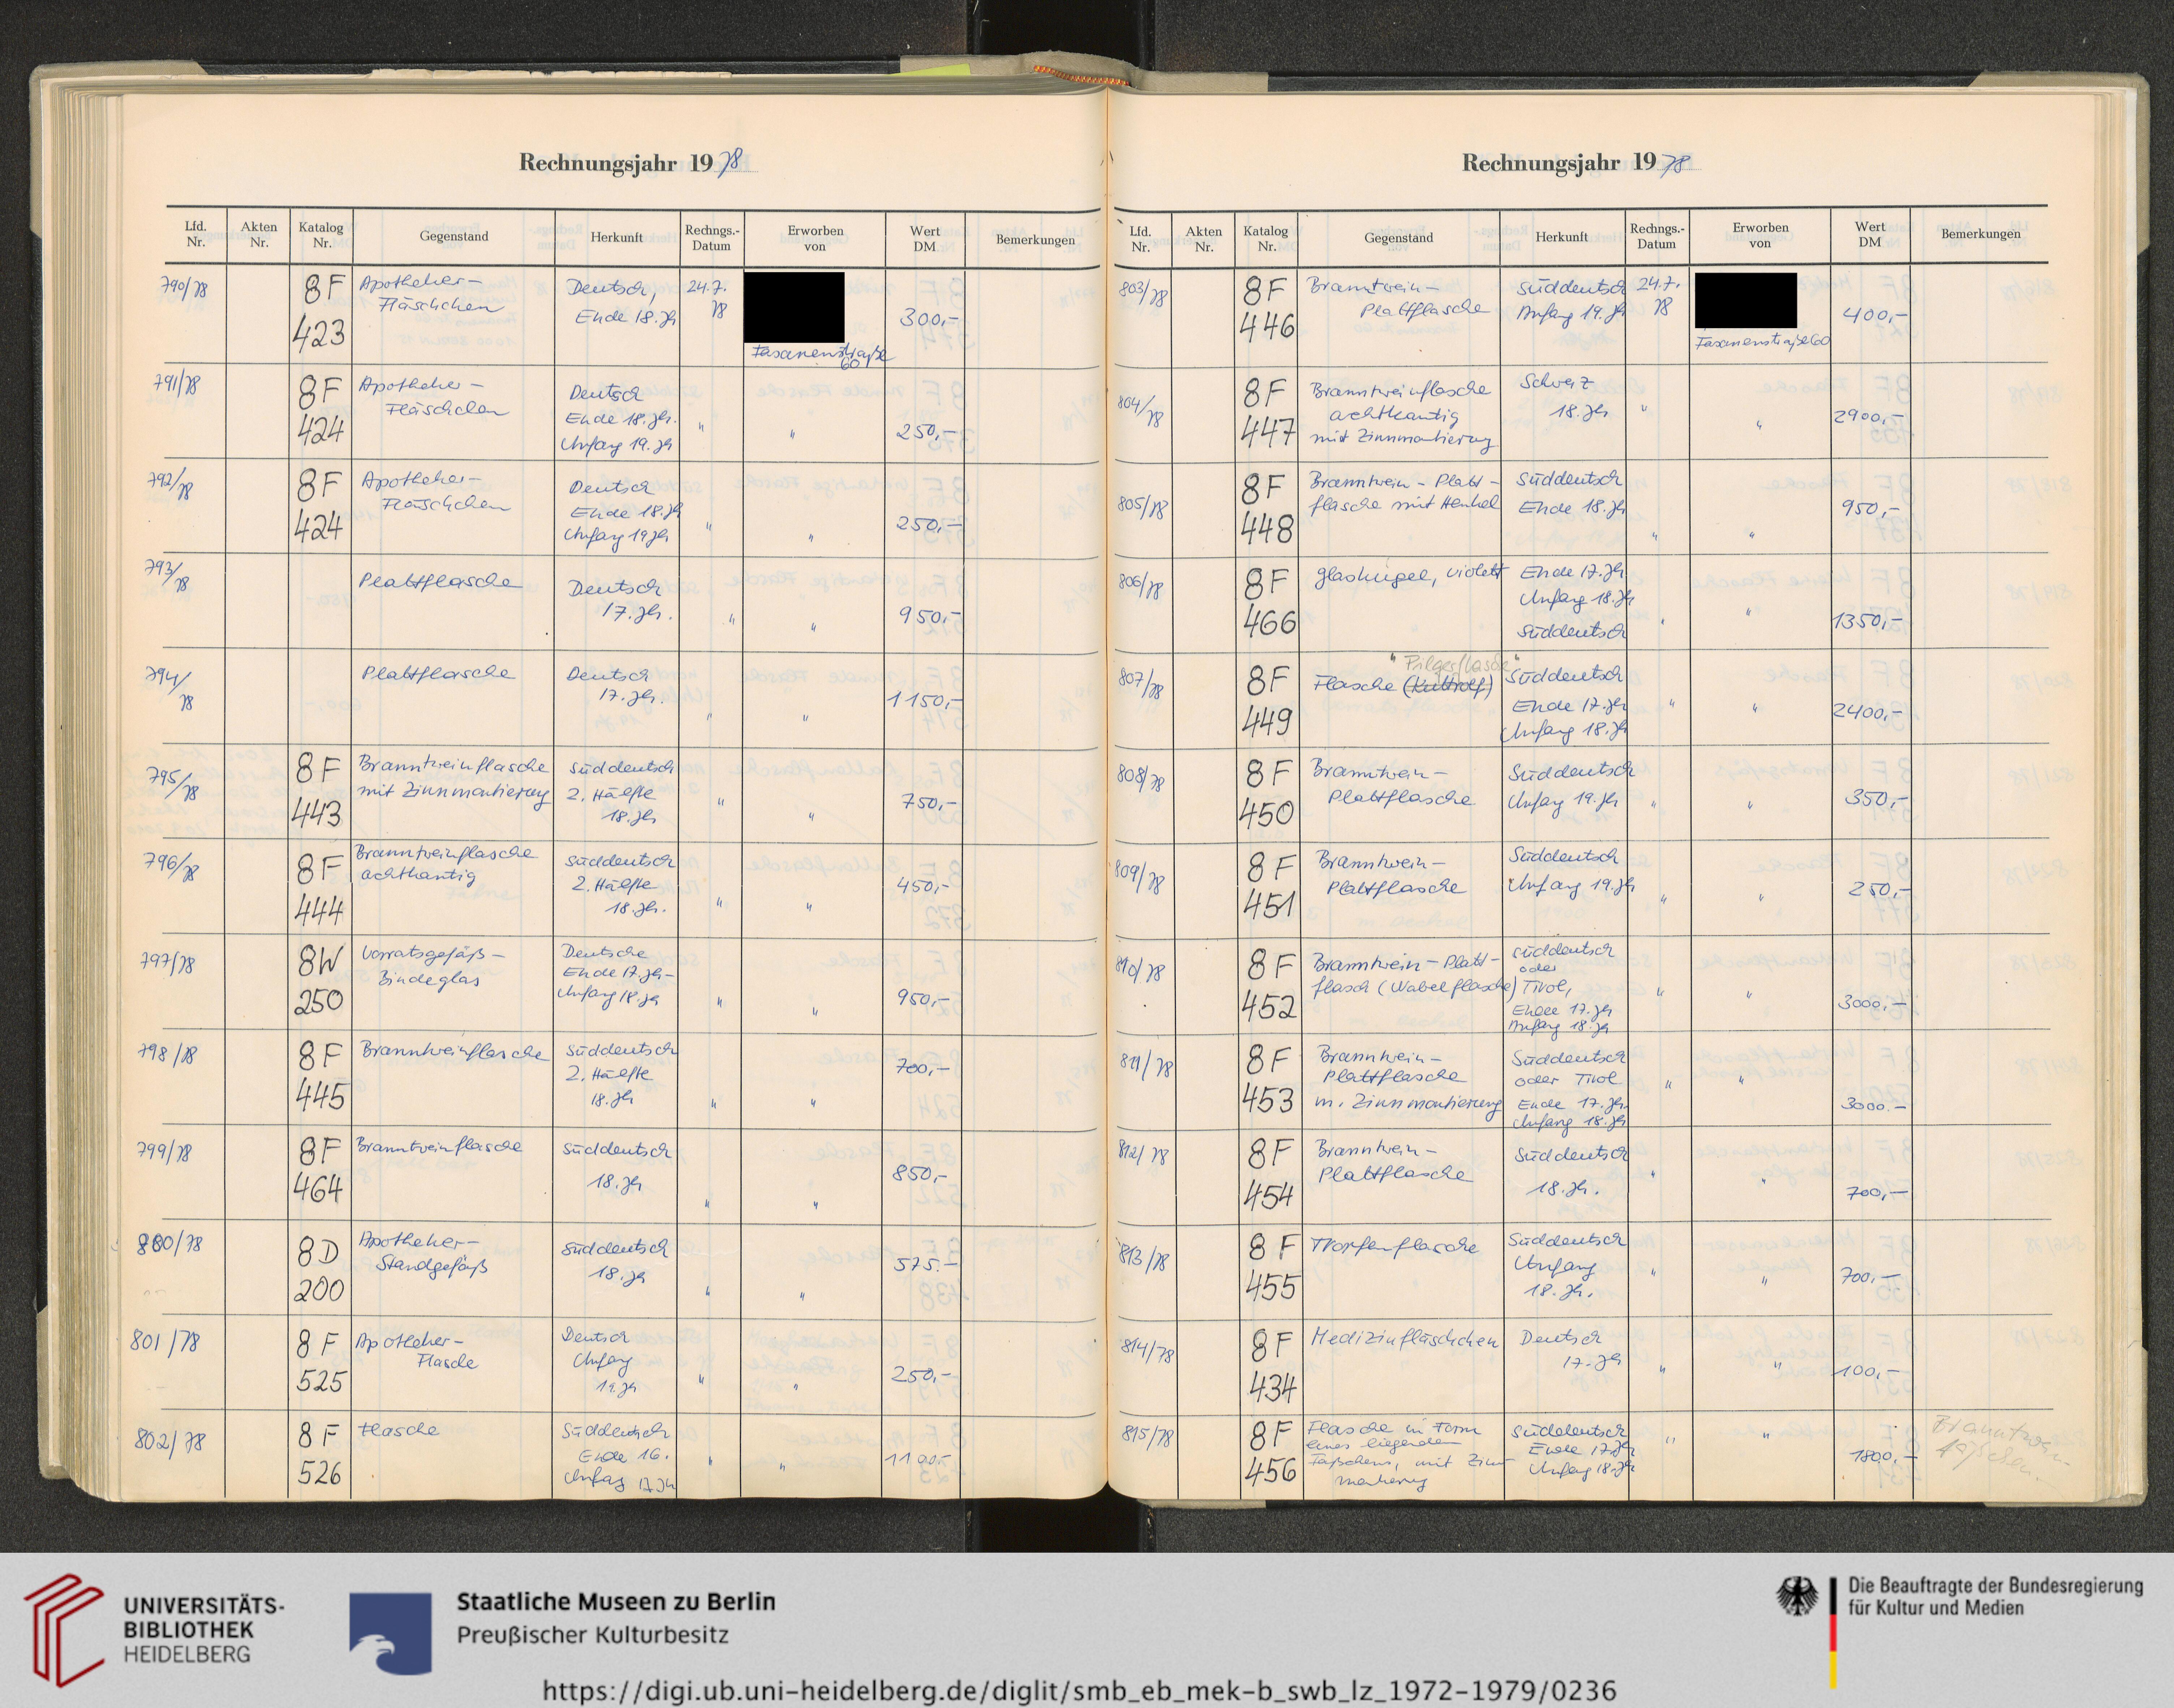 Rechnungsjahr 1978
Lfd. Nr.
Akten Nr.
Katalog Nr.
Gegenstand
Herkunft
Rechngs.-Datum
Erworben von
Wert DM
Bemerkungen
790/78 8F 423 Apotheker-Fläschchen Deutsch, Ende 18. Jh 24.7.78 Fasanenstraße 60 300,-
791/78 8F 424 Apotheker-Fläschchen Deutsch Ende 18. Jh. Anfang 19. Jh " " 250,-
792/78 8F 424 Apotheker-Fläschchen Deutsch Ende 18. Jh Anfang 19 Jh " " 250,-
793/78 Plattflasche Deutsch 17. Jh. " " 950,-
794/78 Plattflasche Deutsch 17. Jh. " " 1150,-
795/78 8F 443 Branntweinflasche mit Zinnmontierung Süddeutsch 2. Hälfte 18. Jh " " 750,-
796/78 8F 444 Branntweinflasche achtkantig Süddeutsch 2. Hälfte 18. Jh. " " 450,-
797/78 8W 250 Vorratsgefäß-Bindeglas Deutsche Ende 17. Jh- Anfang 18. Jh " " 950,-
798/78 8F 445 Branntweinflasche Süddeutsch 2. Hälfte 18. Jh " " 700,-
799/78 8F 464 Branntweinflasche Süddeutsch 18. Jh " " 850,-
800/78 8D 200 Apotheker-Standgefäß Süddeutsch 18. Jh " " 575.-
801/78 8F 525 Apotheker-Flasche Deutsch Anfang 19. Jh " " 250,-
802/78 8F 526 Flasche Süddeutsch Ende 16. Anfag 17. Jh " " 1100.-
Rechnungsjahr 1978
Lfd. Nr.
Akten Nr.
Katalog Nr.
Gegenstand
Herkunft
Rechngs.-Datum
Erworben von
Wert DM
Bemerkungen
803/78 8F 446 Branntwein-Plattflasche Süddeutsch Anfang 19. Jh 24.7.78 Fasanenstraße 60 400,-
804/78 8F 447 Branntweinflasche achtkantig mit Zinnmontierung Schweiz 18. Jh " " 2900,-
805/78 8F 448 Branntwein-Plattflasche mit Henkel Süddeutsch Ende 18. Jh " " 950,-
806/78 8F 466 Glaskugel, violett Ende 17. Jh Anfang 18. Jh Süddeutsch " " 1350,-
807/78 8F 449 Flasche (Kuttrolf) "Pilgerflasche" Süddeutsch Ende 17. Jh Anfang 18. Jh " " 2400,-
808/78 8F 450 Branntwein-Plattflasche Süddeutsch Anfang 19. Jh " " 350,-
809/78 8F 451 Branntwein-Plattflasche Süddeutsch Anfang 19. Jh " " 250,-
810/78 8F 452 Branntwein-Plattflasch (Wabelflasche) Süddeutsch oder Tirol, Ende 17. Jh Anfang 18. Jh " " 3000,-
811/78 8F 453 Branntwein-Plattflasche m. Zinnmontierung Süddeutsch oder Tirol Ende 17. Jh. Anfang 18. Jh " " 3000.-
812/78 8F 454 Branntwein-Plattflasche Süddeutsch 18. Jh. " " 700,-
813/78 8F 455 Tropfenflasche Süddeutsch Anfang 18. Jh. " " 700,-
814/78 8F 434 Medizinfläschchen Deutsch 17. Jh " " 100,-
815/78 8F 456 Flasche in Form eines liegenden Fäßchens, mit Zinnmontierung Süddeutsch Ende 17. Jh Anfang 18. Jh " " 1800,-
UNIVERSITÄTS-
BIBLIOTHEK
HEIDELBERG
Staatliche Museen zu Berlin
Preußischer Kulturbesitz
Die Beauftragte der Bundesregierung
für Kultur und Medien
https://digi.ub.uni-heidelberg.de/diglit/smb_eb_mek-b_swb_lz_1972-1979/0236